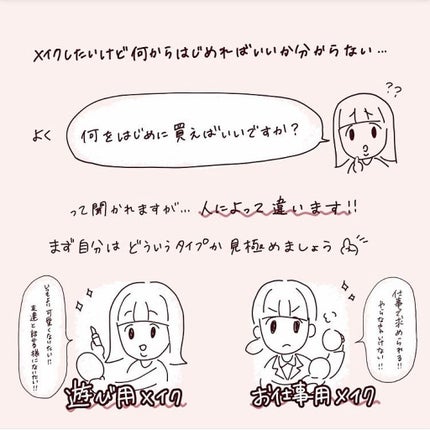 メイクしたいけど何からはじめればいいか分からない…
よく
何をはじめに買えばいいですか？
??
って聞かれますが… 人によって違います!!
まず自分は どういうタイプか 見極めましょう
いつもより可愛くなりたい!!
友達と話せる様になりたい!!
仕事で求められる!!
やらなきゃいけない!!
遊び用メイク
お仕事用メイク